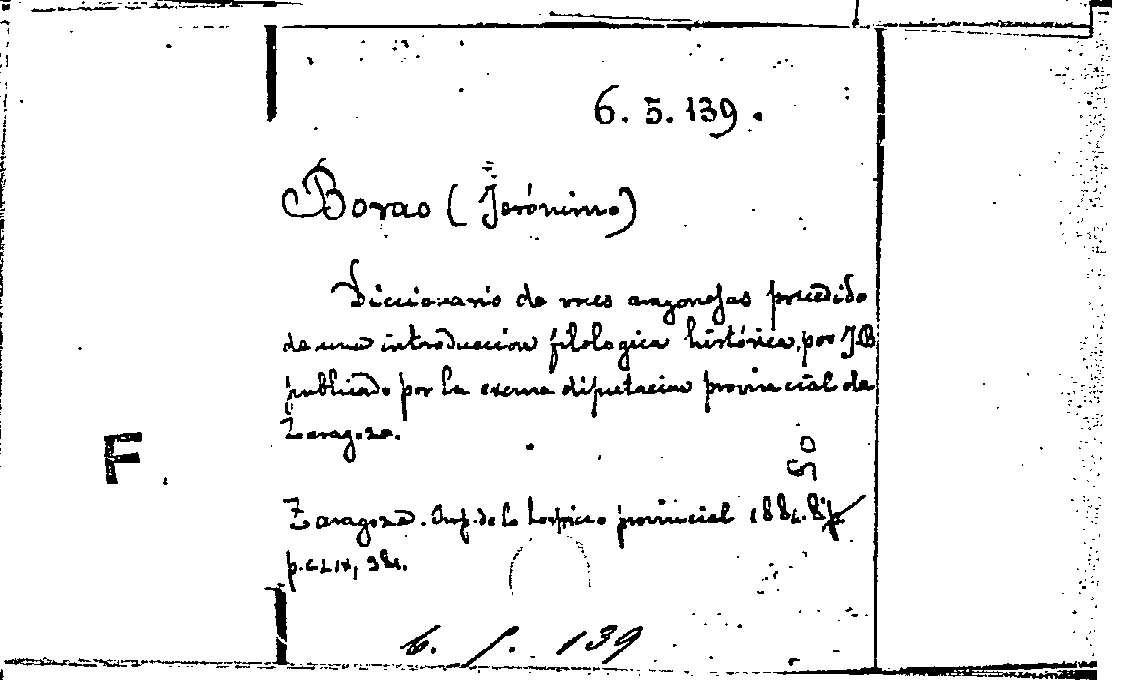 6. 5. 139.
Borao (Jerónimo)
Diccionario de voces aragonesas precedido
de una introducción filologica histórica, por J.B
publicado por la excma diputacion provincial de
Zaragoza.
F.
50
Zaragoza. Imp. de lo hospicio provincial
p. CLIX,
6. 5. 139